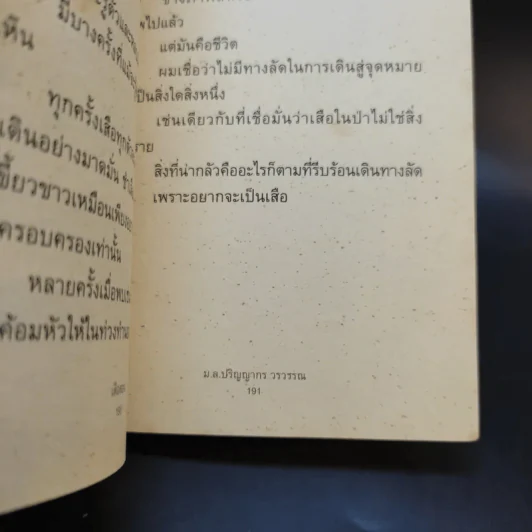 มีบางครั้งที่
หิน
ทุกครั้งเสือทุก
เดินอย่างมาดมั่น
เขี้ยวขาวเหมือนเพียง
ครอบครองเท่านั้น
หลายครั้งเมื่อพบ
ค้อมหัวให้ในท่วงท่า
190
ไปแล้ว
แต่มันคือชีวิต
ผมเชื่อว่าไม่มีทางลัดในการเดินสู่จุดหมาย
เป็นสิ่งใดสิ่งหนึ่ง
เช่นเดียวกับที่เชื่อมั่นว่าเสือในป่าไม่ใช่สิ่ง
ราย
สิ่งที่น่ากลัวคืออะไรก็ตามที่รีบร้อนเดินทางลัด
เพราะอยากจะเป็นเสือ
ม.ล.ปริญญากร วรวรรณ
191